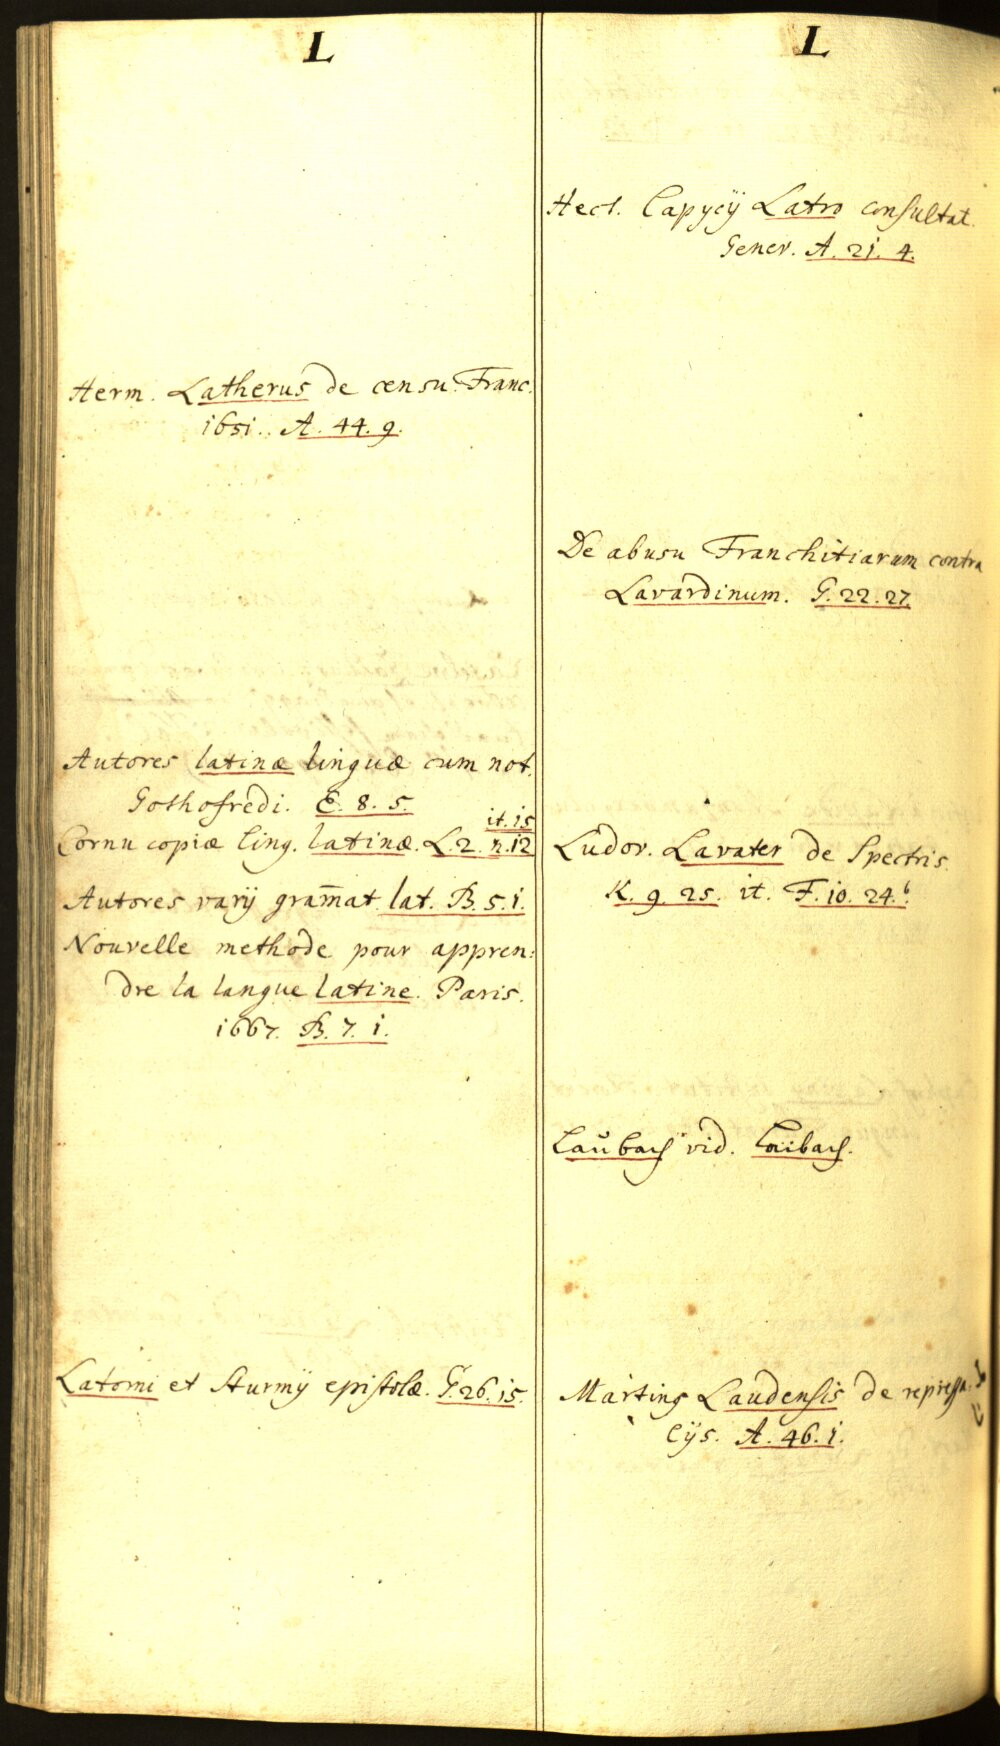 L
Herm. Latherus de censu. Franc.
1651.. A. 44. 9.
Autores latinæ linguæ cum not.
Gothofredi. E. 8. 5.
it. 15
Cornu copiæ ling. latinæ. L. 2. n. 12
Autores varÿ gram̄at. lat. B. 5. 1.
Nouvelle methode pour appren:
dre la langue latine. Paris.
1667. B. 7. 1.
Latomi et Sturmÿ epistolæ. G. 26. 15.
L
Hect. Capycÿ Latro consultat.
Genev. A. 21. 4.
De abusu Franchitiarum contra
Lavardinum. G. 22. 27.
Ludov. Lavater de Spectris.
K. 9. 25. it. F. 10. 24. 6
Laŭbach vid. Laibach.
Martinus Laudensis de repressa:
lÿs. A. 46. 1.